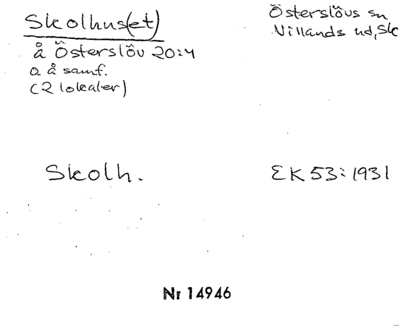 Skolhus(et)
å Österslöv 20:4
o å samf.
(2 lokaler)
Österslövs sn
Villands hd, Sk
Skolh.
EK 53:1931
Nr 14946